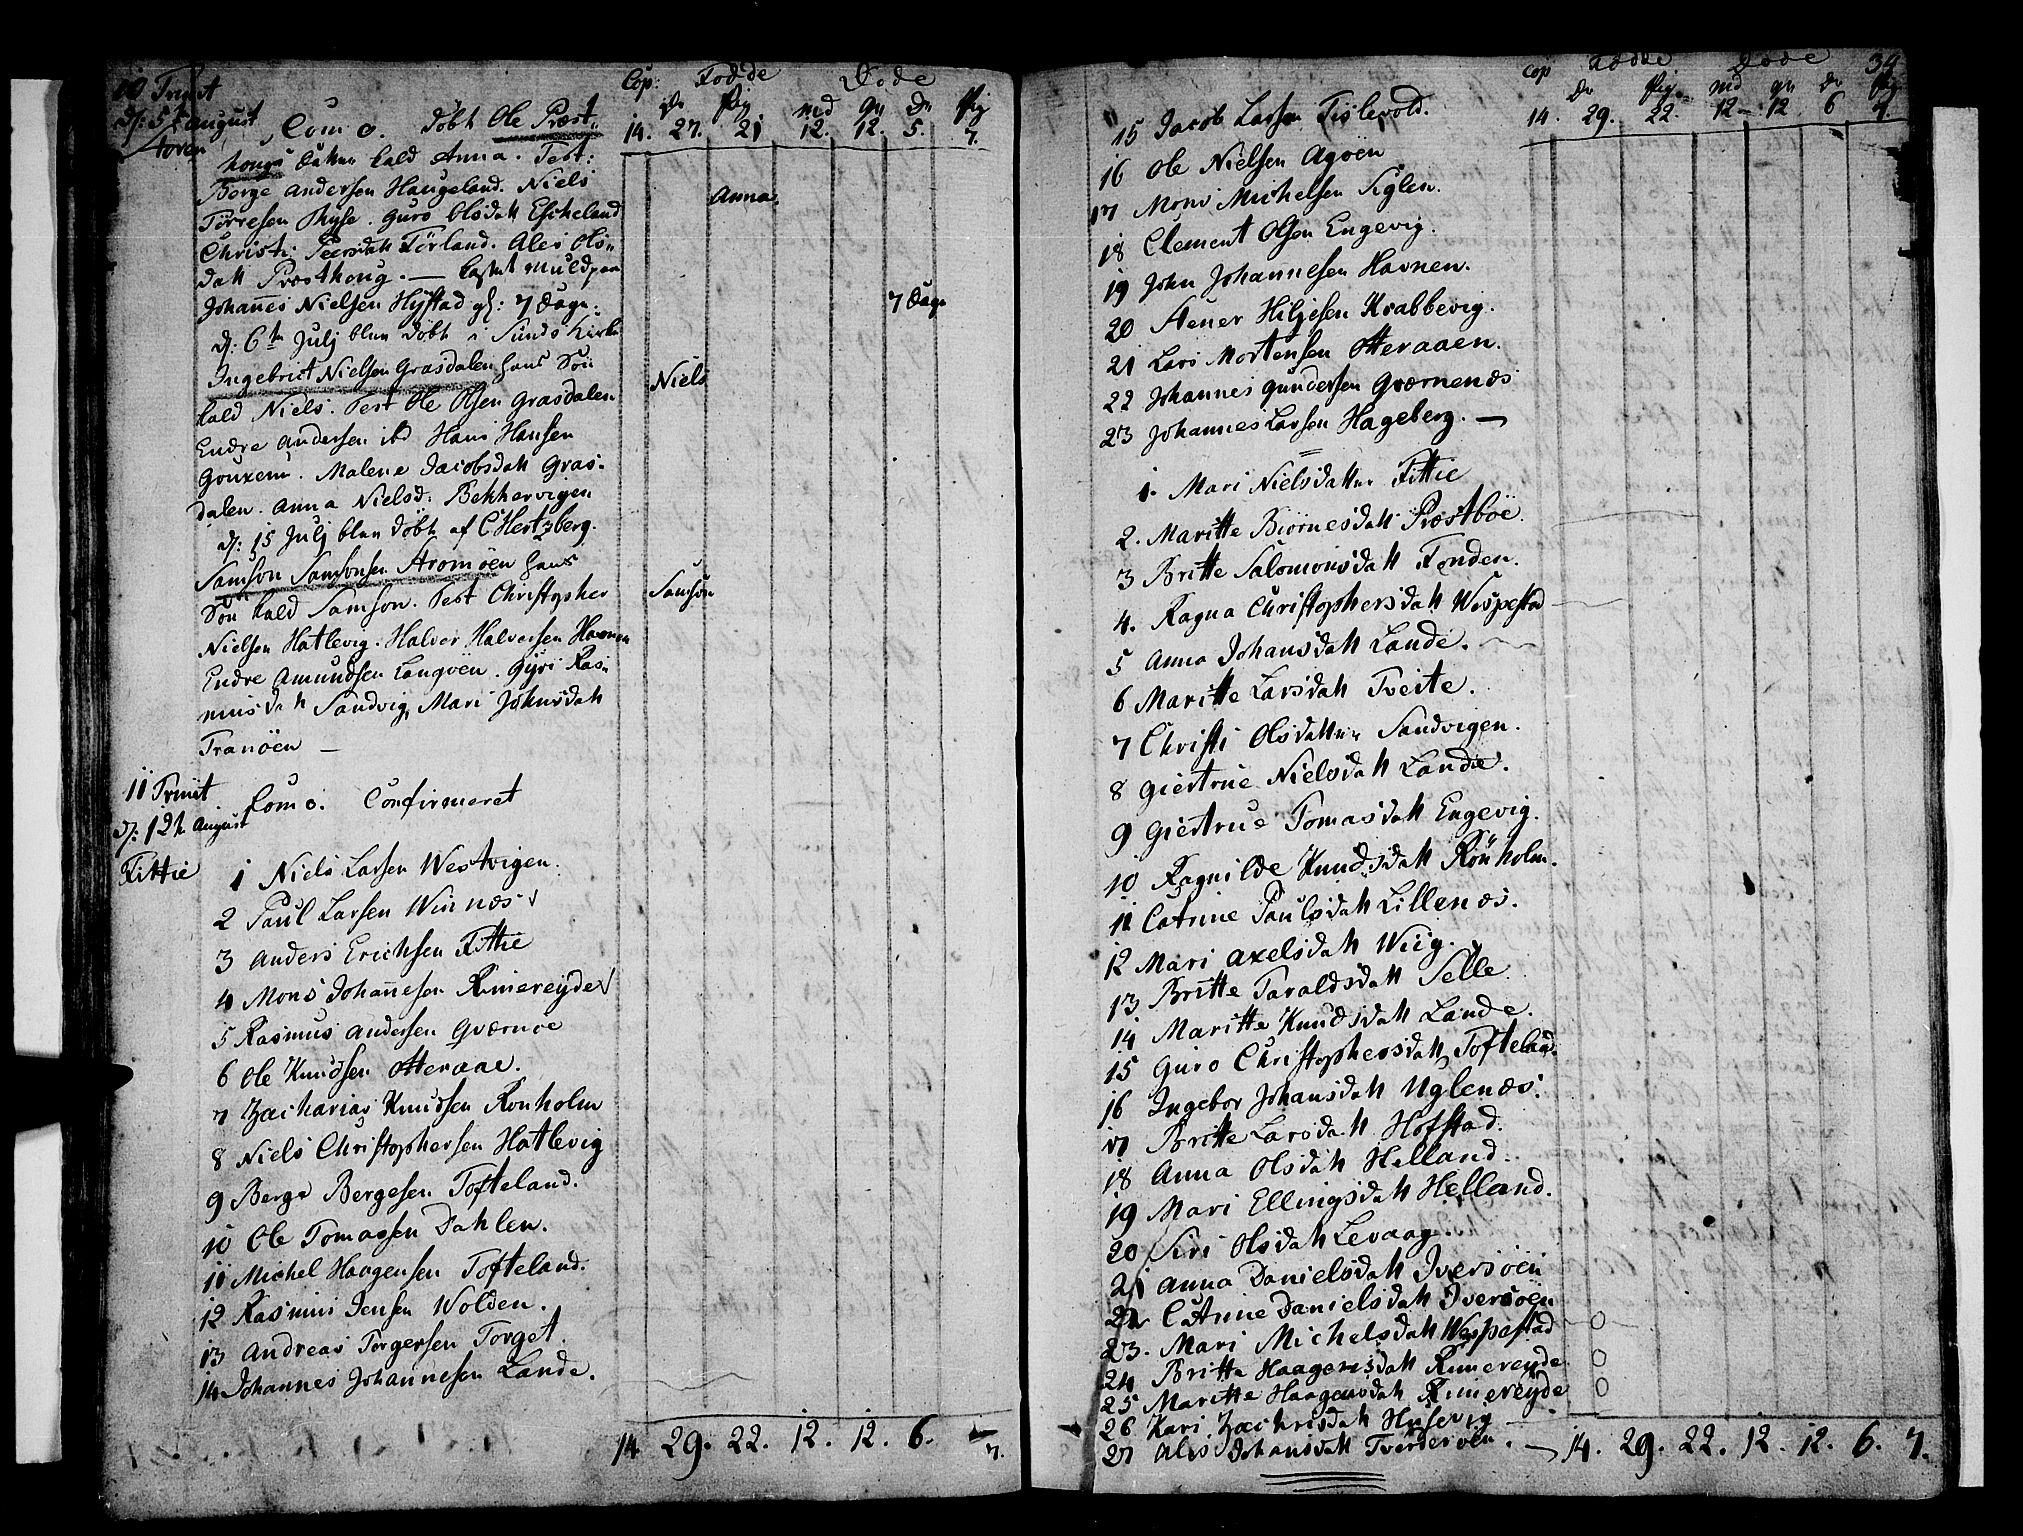 10 Trinit
d: 5t August
Com o. Døbt Ole Præst-
houg Datter kald Anna. Test:
Berge Andersen Haugeland. Niels
Tørresen Thyse. Guro Olsdatt Escheland
Christi Peersdatt Førland. Ales Ols-
datt Præsthoug. — kastet Muld paa
Johannes Nielsen Hystad gl: 7 Dage.
d: 6te Julj blev døbt i Sunds Kirke
Ingebrict Nielsen Grasdalen hans Søn
kald Niels. Test Ole Olsen Grasdalen
Endre Andersen ibd Hans Hansen
Malene Jacobsdatt Gras-
dalen. Anna Nielsd: Bekkervigen
d: 15 Julj blev døbt af C Hertzberg.
Samson Samsonsen Aromøen hans
Søn kald Samson. Test Christopher
Nielsen Hatlevig. Halvor Halvorsen Havnen
Endre Amundsen Langøen. Gyri Ras-
musdatt Sandvig, Mari Johnsdatt
Tranøen —
Cop. Fødde Døde
Dr Pig md qv Dr Pig
14. 27. 21 12. 12. 5. 7.
Anna.
7 Dage
Niels
Samson
11 Trinit
d: 12t August
Fittie
Com o. Confirmeret
1 Niels Larsen Westvigen.
2 Paul Larsen Winnæs
3 Anders Erichsen Fittie
4 Mons Johannesen Rimereyde
5 Rasmus Andersen Gværnøe
6 Ole Knudsen Otteraae.
7 Zacharias Knudsen Rønholm
8 Niels Christophersen Hatlevig
9 Berge Bergesen Tofteland.
10 Ole Tomassen Dahlen.
11 Michel Haagensen Tofteland.
12 Rasmus Jensen Wolden.
13 Andreas Torgersen Torget.
14 Johannes Johannesen Lande.
14 29. 22. 12. 12. 6. 7.
34
Cop Fødde Døde
Dr Pig md qv Dr Pig
14. 29. 22. 12 — 12 6 7.
15 Jacob Larsen
16 Ole Nielsen Agøen
17 Mons Michelsen Siglen.
18 Clement Olsen Engevig.
19 John Johannesen Havnen.
20 Stener Hiljesen Krabbevig.
21 Lars Mortensen Otteraaen.
22 Johannes Gundersen Gværnenæs
23 Johannes Larsen Hageberg. —
1. Mari Nielsdatter Fittie
2. Maritte Biørnesdatt Præstbøe.
3 Britte Salomonsdatt Fonden.
4. Ragna Christophersdatt Wespestad
5 Anna Johansdatt Lande.
6 Maritte Larsdatt Tveite.
7 Christi Olsdatter Sandvigen.
8 Giertrue Nielsdatt Lande.
9 Giertrue Tomasdatt Engevig.
10 Ragnilde Knudsdatt Rønholm.
11 Catrine Paulsdatt Lillenæs.
12 Mari Axelsdatt Wiig.
13 Britte Taraldsdatt Selle
14 Maritte Knudsdatt Lande.
15 Guro Christophersdatt Tofteland.
16 Ingebor Johansdatt Uglenæs.
17 Britte Larsdatt Hofstad.
18 Anna Olsdatt Helland.
19 Mari Ellingsdatt Helland.
20 Siri Olsdatt Levaag.
21 Anna Danielsdatt Iversøen
22 Catrine Danielsdatt Iversøen
23. Mari Michelsdatt Wespestad
24 Britte Haagensdatt Rimereyde
25 Maritte Haagensdatt Rimereyde
26 Kari Zachrisdatt Husevig —
27 Ales Johansdatt Tverderøen. —
14. 29. 22. 12. 12. 6. 7.